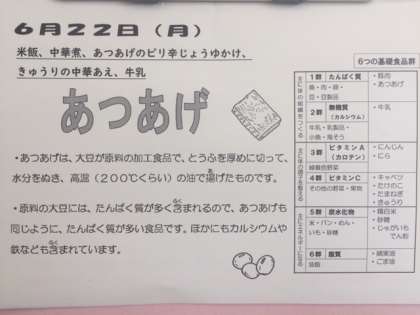 6月22日（月）
米飯、中華煮、あつあげのピリ辛じょうゆかけ、
きゅうりの中華あえ、牛乳
あつあげ
・あつあげは、大豆が原料の加工食品で、とうふを厚めに切って、
水分をぬき、高温（200℃くらい）の油で揚げたものです。
・原料の大豆には、たんぱく質が多く含まれるので、あつあげも
同じように、たんぱく質が多い食品です。ほかにもカルシウムや
鉄なども含まれています。
6つの基礎食品群
主に体の組織をつくる
1群 たんぱく質
魚・肉・卵・
豆・豆製品
・豚肉
・あつあげ
2群 無機質
（カルシウム）
牛乳・乳製品・
小魚・海そう
・牛乳
主に体の調子を整える
3群 ビタミンA
（カロテン）
緑黄色野菜
・にんじん
・にら
4群 ビタミンC
その他の野菜・果物
・キャベツ
・たけのこ
・たまねぎ
・きゅうり
主にエネルギーになる
5群 炭水化物
米・パン・めん・
いも・砂糖
・精白米
・砂糖
・じゃがいも
でん粉
6群 脂質
油脂
・綿実油
・ごま油